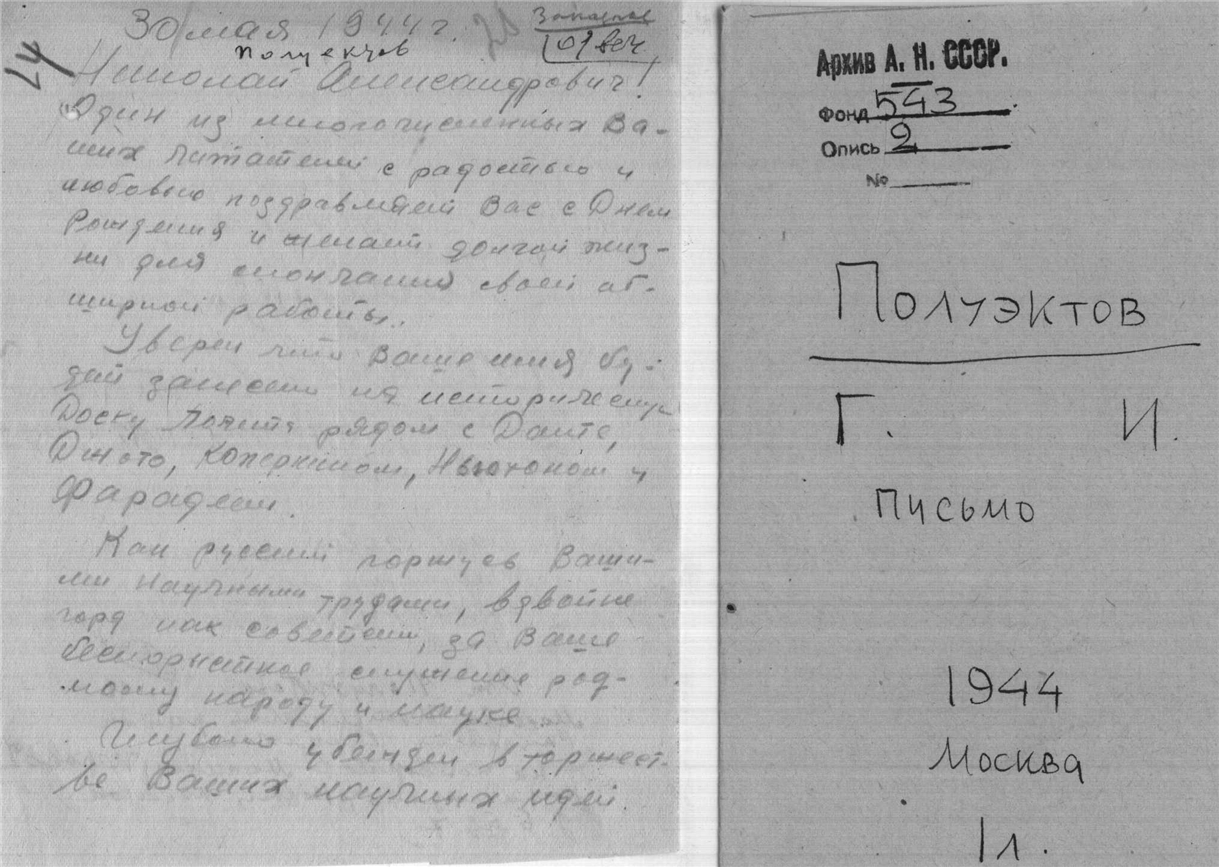 30 мая 1944 г.
Полуектов
Николай Александрович!
Один из многочисленных Ва-
ших читателей с радостью и
любовью поздравляет Вас с Днем
Рождения и желает долгой жиз-
ни для окончания своей об-
ширной работы.
Уверен что Ваше имя бу-
дет занесено на историческую
Доску рядом с Данте,
Джото, Коперником, Ньютоном и
Фарадеем.
Как русский горжусь Ваши-
ми научными трудами, вдвойне
горд как советский, за Ваше
бескорыстное служение род-
ному народу и науке.
Глубоко убежден в торжест-
ве Ваших научных идей.
Архив А. Н. СССР.
Фонд 543
Опись 2
№
Полуэктов
Г. И.
Письмо
1944
Москва
1 л.